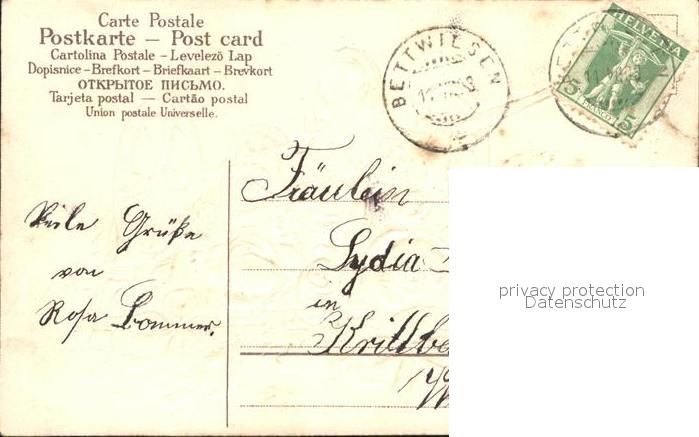 Carte Postale
Postkarte – Post card
Cartolina Postale – Levelező Lap
Dopisnice – Brefkort – Briefkaart – Brevkort
ОТКРЫТОЕ ПИСЬМО.
Tarjeta postal – Cartão postal
Union postale Universelle.
BETTWIESEN
HELVETIA
5 FRANCO 5
Fräulein
Lydia
in
Krillbe
Viele Grüße
von
Rosa Bommer.
privacy protection
Datenschutz